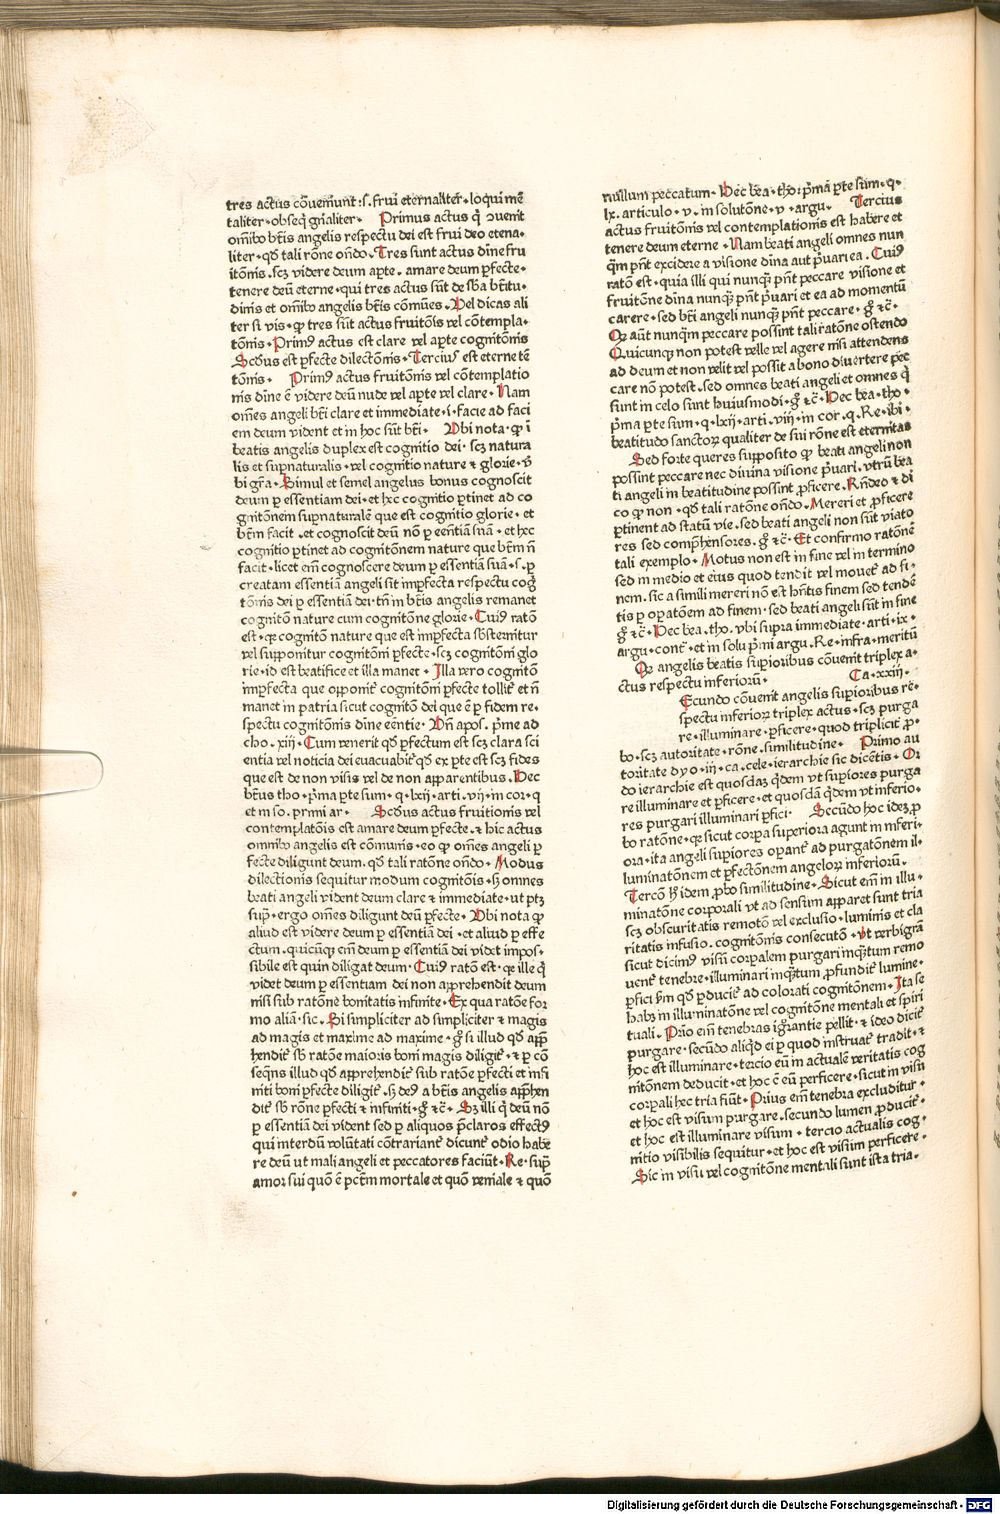 tres actus cōveniunt .s. frui eternaliter. loqui mē
taliter. obseq gn̄aliter. Primus actus q̄ ↄuenit
om̄ibꝰ bt̄is angelis respectu dei est frui deo eterna
liter. qd̓ tali rōne on̄do. Tres sunt actus diūne fru
itōnis. scꝫ videre deum aꝑte. amare deum ꝑfecte.
tenere deū eterne. qui tres actus sūt de sb̄a bt̄itu
dinis et om̄ibꝰ angelis bt̄is cōmūes. Vel dicas ali
ter si vis. ꝙ tres sūt actus fruitōis vel cōtempla
tōnis. Primꝰ actus est clare vel aꝑte cognitōnis
Scd̓us est ꝑfecte dilectōnis. Terciuſ est eterne tē
tōnis. Primꝰ actus fruitōnis vel cōtemplatio
nis diūne ē videre deū nude vel aꝑte vel clare. Nam
om̄es angeli bt̄i clare et immediate .i. facie ad faci
em deum vident et in hoc sūt bt̄i. Vbi nota. ꝙ ī
beatis angelis duplex est cognitio dei. scꝫ natura
lis et supnaturalis. vel cognitio nature ⁊ glorie. v̄
bi gr̄a. Simul et semel angelus bonus cognoscit
deum ꝑ essentiam dei. et hec cognitio ꝑtinet ad co
gnitōnem supnaturalē que est cognitio glorie. et
bt̄m facit. et cognoscit deū nō ꝑ eēntiā suā. et hec
cognitio ꝑtinet ad cognitōnem nature que bt̄m n̄
facit. licet em̄ cognoscere deum ꝑ essentiā suā .s. ꝑ
creatam essentiā angeli sit imꝑfecta respectu cog
tōnis dei ꝑ essentiā dei. tn̄ in bt̄is angelis remanet
cognitō nature cum cognitōne glorie. Cuiꝰ ratō
est. qꝛ cognitō nature que est imꝑfecta sb̄sternitur
vel supponitur cognitōni ꝑfecte. scꝫ cognitōni glo
rie. id est beatifice et illa manet. Illa vero cognitō
imꝑfecta que opponit̄ cognitōni ꝑfecte tollit̄ et n̄
manet in patria sicut cognitō dei que ē ꝑ fidem re
spectu cognitōnis diūne eēntie. Vn̄ apos. pͥme ad
cho. xiij. Cum venerit qd̓ perfectum est scꝫ clara sci
entia vel noticia dei euacuabit̄ qd̓ ex ꝑte est scꝫ fides
que est de non visis vel de non apparentibus. Hec
bt̄us tho. pͥma ꝑte sum. q. lxij. arti. vij. in cor. q
et in so. primi ar. Scd̓us actus fruitionis vel
contemplatōis est amare deum ꝑfecte. et hic actus
omnibꝰ angelis est cōmunis. eo ꝙ om̄es angeli ꝑ
fecte diligunt deum. qd̓ tali ratōne on̄do. Modus
dilectionis sequitur modum cognitōis. sꝫ omnes
beati angeli vident deum clare ⁊ immediate. ut ptꝫ
sup̄. ergo om̄es diligunt deū ꝑfecte. Vbi nota ꝙ
aliud est videre deum ꝑ essentiā dei. et aliud ꝑ effe
ctum. quicūqꝫ em̄ deum ꝑ essentiā dei videt impos
sibile est quin diligat deum. Cuiꝰ ratō est. qꝛ ille q̄
videt deum ꝑ essentiam dei non apprehendit deum
nisi sub ratōne bonitatis infinite. Ex qua ratōe for
mo aliā. sic. Si simpliciter ad simpliciter ⁊ magis
ad magis et maxime ad maxime. gͦ si illud qd̓ appͤ
hendit̄ sb̄ ratōe maioris boni magis diligit̄. ⁊ ꝑ cō
seqn̄s illud qd̓ apprehendit̄ sub ratōe ꝑfecti et infi
niti boni ꝑfecte diligit̄. sꝫ deꝰ a bt̄is angelis appͤhen
dit̄ sb̄ rōne ꝑfecti ⁊ infiniti. gͦ ⁊c̄. Sꝫ illi q̄ deū nō
ꝑ essentiā dei vident sed ꝑ aliquos p̄claros effectꝰ
qui interdū volūtati cōtrariant̄ dicunt̄ odio habe
re deū ut mali angeli et peccatores faciūt. Re. sup̄
amor sui quō ē pct̄m mortale et quō veniale ⁊ quō
nullum peccatum. Hec bea. tho. pͥma ꝑte sum. q.
lx. articulo. v. in solutōne. v. argu. Tercius
actus fruitōnis vel contemplationis est habere et
tenere deum eterne. Nam beati angeli omnes nun
qͣm pn̄t excidere a visione diūna aut pͥuari ea. Cuiꝰ
ratō est. quia illi qui nunqͣ pn̄t peccare visione et
fruitōne diūna nunqͣ pn̄t pͥuari et ea ad momentū
carere. sed bt̄i angeli nunqͣ pn̄t peccare. gͦ ⁊c̄.
Qꝛ aūt nunqͣm peccare possint tali ratōne ostendo
Quicunqꝫ non potest velle vel agere nisi attendens
ad deum et non velit vel possit a bono diuertere pec
care nō potest. sed omnes beati angeli et omnes q̄
sunt in celo sunt huiusmodi. gͦ ⁊c̄. Hec bea. tho.
pͥma ꝑte sum. q. lxij. arti. viij. in cor. q. Re. ibi.
beatitudo sanctoꝝ qualiter de sui rōne est eternitas
Sed forte queres supposito ꝙ beati angeli non
possint peccare nec diuina visione pͥuari. vtrū bea
ti angeli in beatitudine possint ꝓficere. Rn̄deo ⁊ di
co ꝙ non. qd̓ tali ratōne on̄do. Mereri et ꝓficere
ꝑtinent ad statū vie. sed beati angeli non sūt viato
res sed comp̄hensores. gͦ ⁊c̄. Et confirmo ratōnē
tali exemplo. Motus non est in fine vel in termino
sed in medio et eius quod tendit vel mouet̄ ad fi
nem. sic a simili mereri nō est hn̄tis finem sed tendē
tis ꝑ oꝑatōem ad finem. sed beati angeli sūt in fine
gͦ ⁊c̄. Hec bea. tho. vbi supra immediate. arti. ix.
argu. cont̄. et in solu pͥmi argu. Re. infra. meritū
Qꝛ angelis beatis supioribus cōuenit triplex a
ctus respectu inferiorū. Ca. xxiij.
Ecundo cōuenit angelis supioribus re
spectu inferioꝝ triplex actus. scꝫ purga
re. illuminare. ꝑficere. quod triplicit̄ ꝓ
bo. scꝫ autoritate. rōne. similitudine. Primo au
toritate dyo. iij. ca. cele. ierarchie sic dicētis. Or
do ierarchie est quosdaꝫ qͥdem vt supiores purga
re illuminare et ꝑficere. et quosdā qͥdem vt inferio
res purgari illuminari ꝑfici. Secūdo hoc ideꝫ ꝓ
bo ratōne. qꝛ sicut corpa superiora agunt in inferi
ora. ita angeli supiores oꝑant̄ ad purgatōnem il
luminatōnem et ꝑfectōnem angeloꝝ inferiorū.
Tercō hͦ idem ꝓbo similitudine. Sicut em̄ in illu
minatōne corporali vt ad sensum apparet sunt tria
scꝫ obscuritatis remotō vel exclusio. luminis et cla
ritatis infusio. cognitōnis consecutō. vt verbigrā
sicut dicimꝰ visū corpalem purgari inqͣtum remo
uent̄ tenebre. illuminari inqͣtum ꝓfundit̄ lumine.
ꝑfici ẜm qd̓ ꝑducit̄ ad colorati cognitōnem. Ita se
habꝫ in illuminatōne vel cognitōne mentali et spiri
tuali. Prīo em̄ tenebras igrātie pellit. ⁊ ideo dicit̄
purgare. secūdo aliqd̓ ei ꝑ quod instruat̄ tradit. ⁊
hoc est illuminare. tercio eū in actualē veritatis cog
nitōnem deducit. et hoc ē eū perficere. sicut in visu
corpali hec tria fiūt. Prius em̄ tenebra excluditur.
et hoc est visum purgare. secundo lumen ꝓducit̄.
et hoc est illuminare visum. tercio actualis cog
nitio visibilis sequitur. et hoc est visum perficere.
Sic in visu vel cognitōne mentali sunt ista tria.
Digitalisierung gefördert durch die Deutsche Forschungsgemeinschaft - DFG